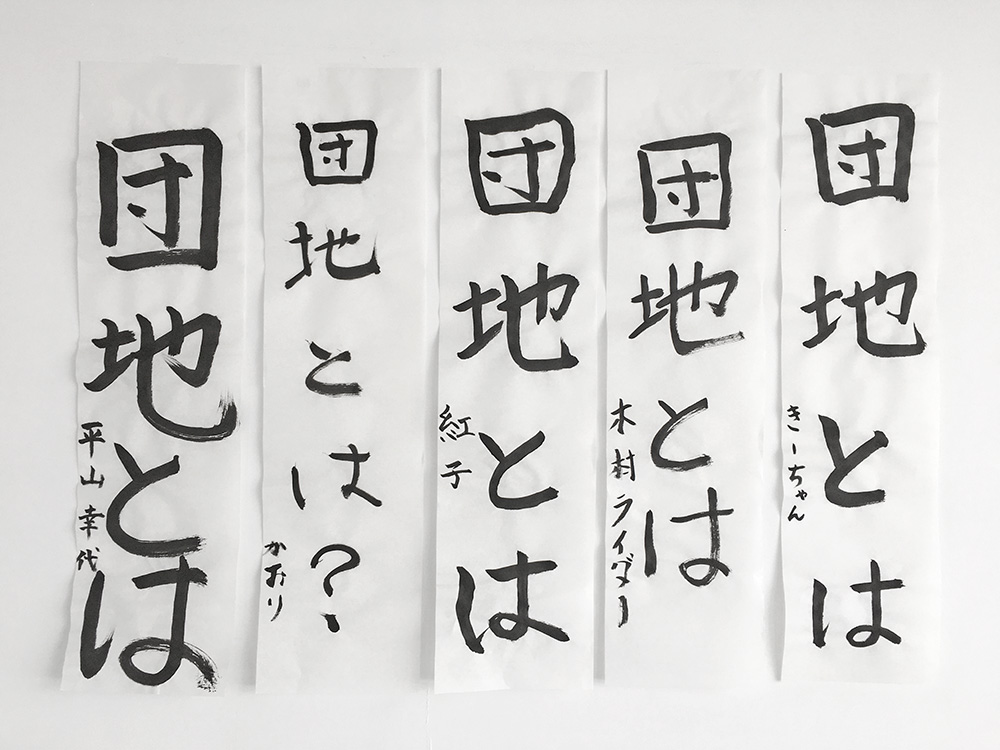 団地とは
きーちゃん
団地とは
木村ライダー
団地とは
紅子
団地とは？
かおり
団地とは
平山幸代